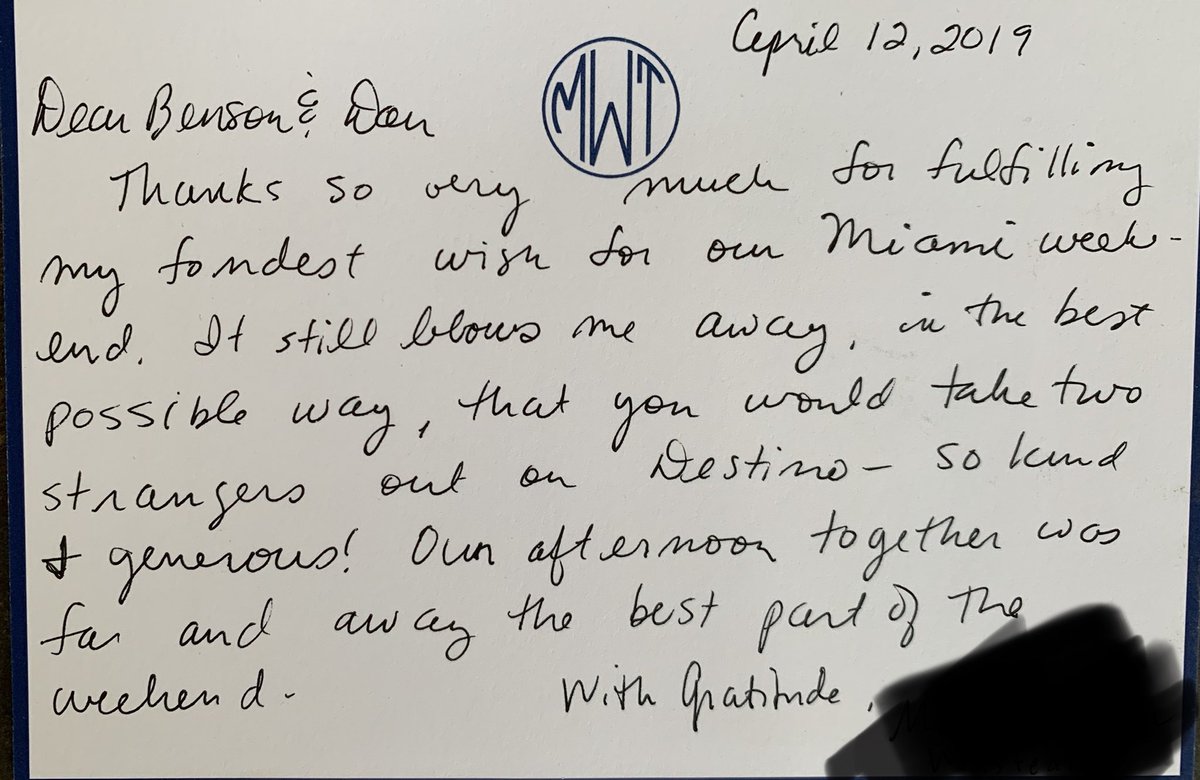 April 12, 2019
MWT
Dear Benson & Dan
Thanks so very much for fulfilling
my fondest wish for our Miami week-
end. It still blows me away, in the best
possible way, that you would take two
strangers out on Destino - so kind
& generous! Our afternoon together was
far and away the best part of the
weekend -
With Gratitude,